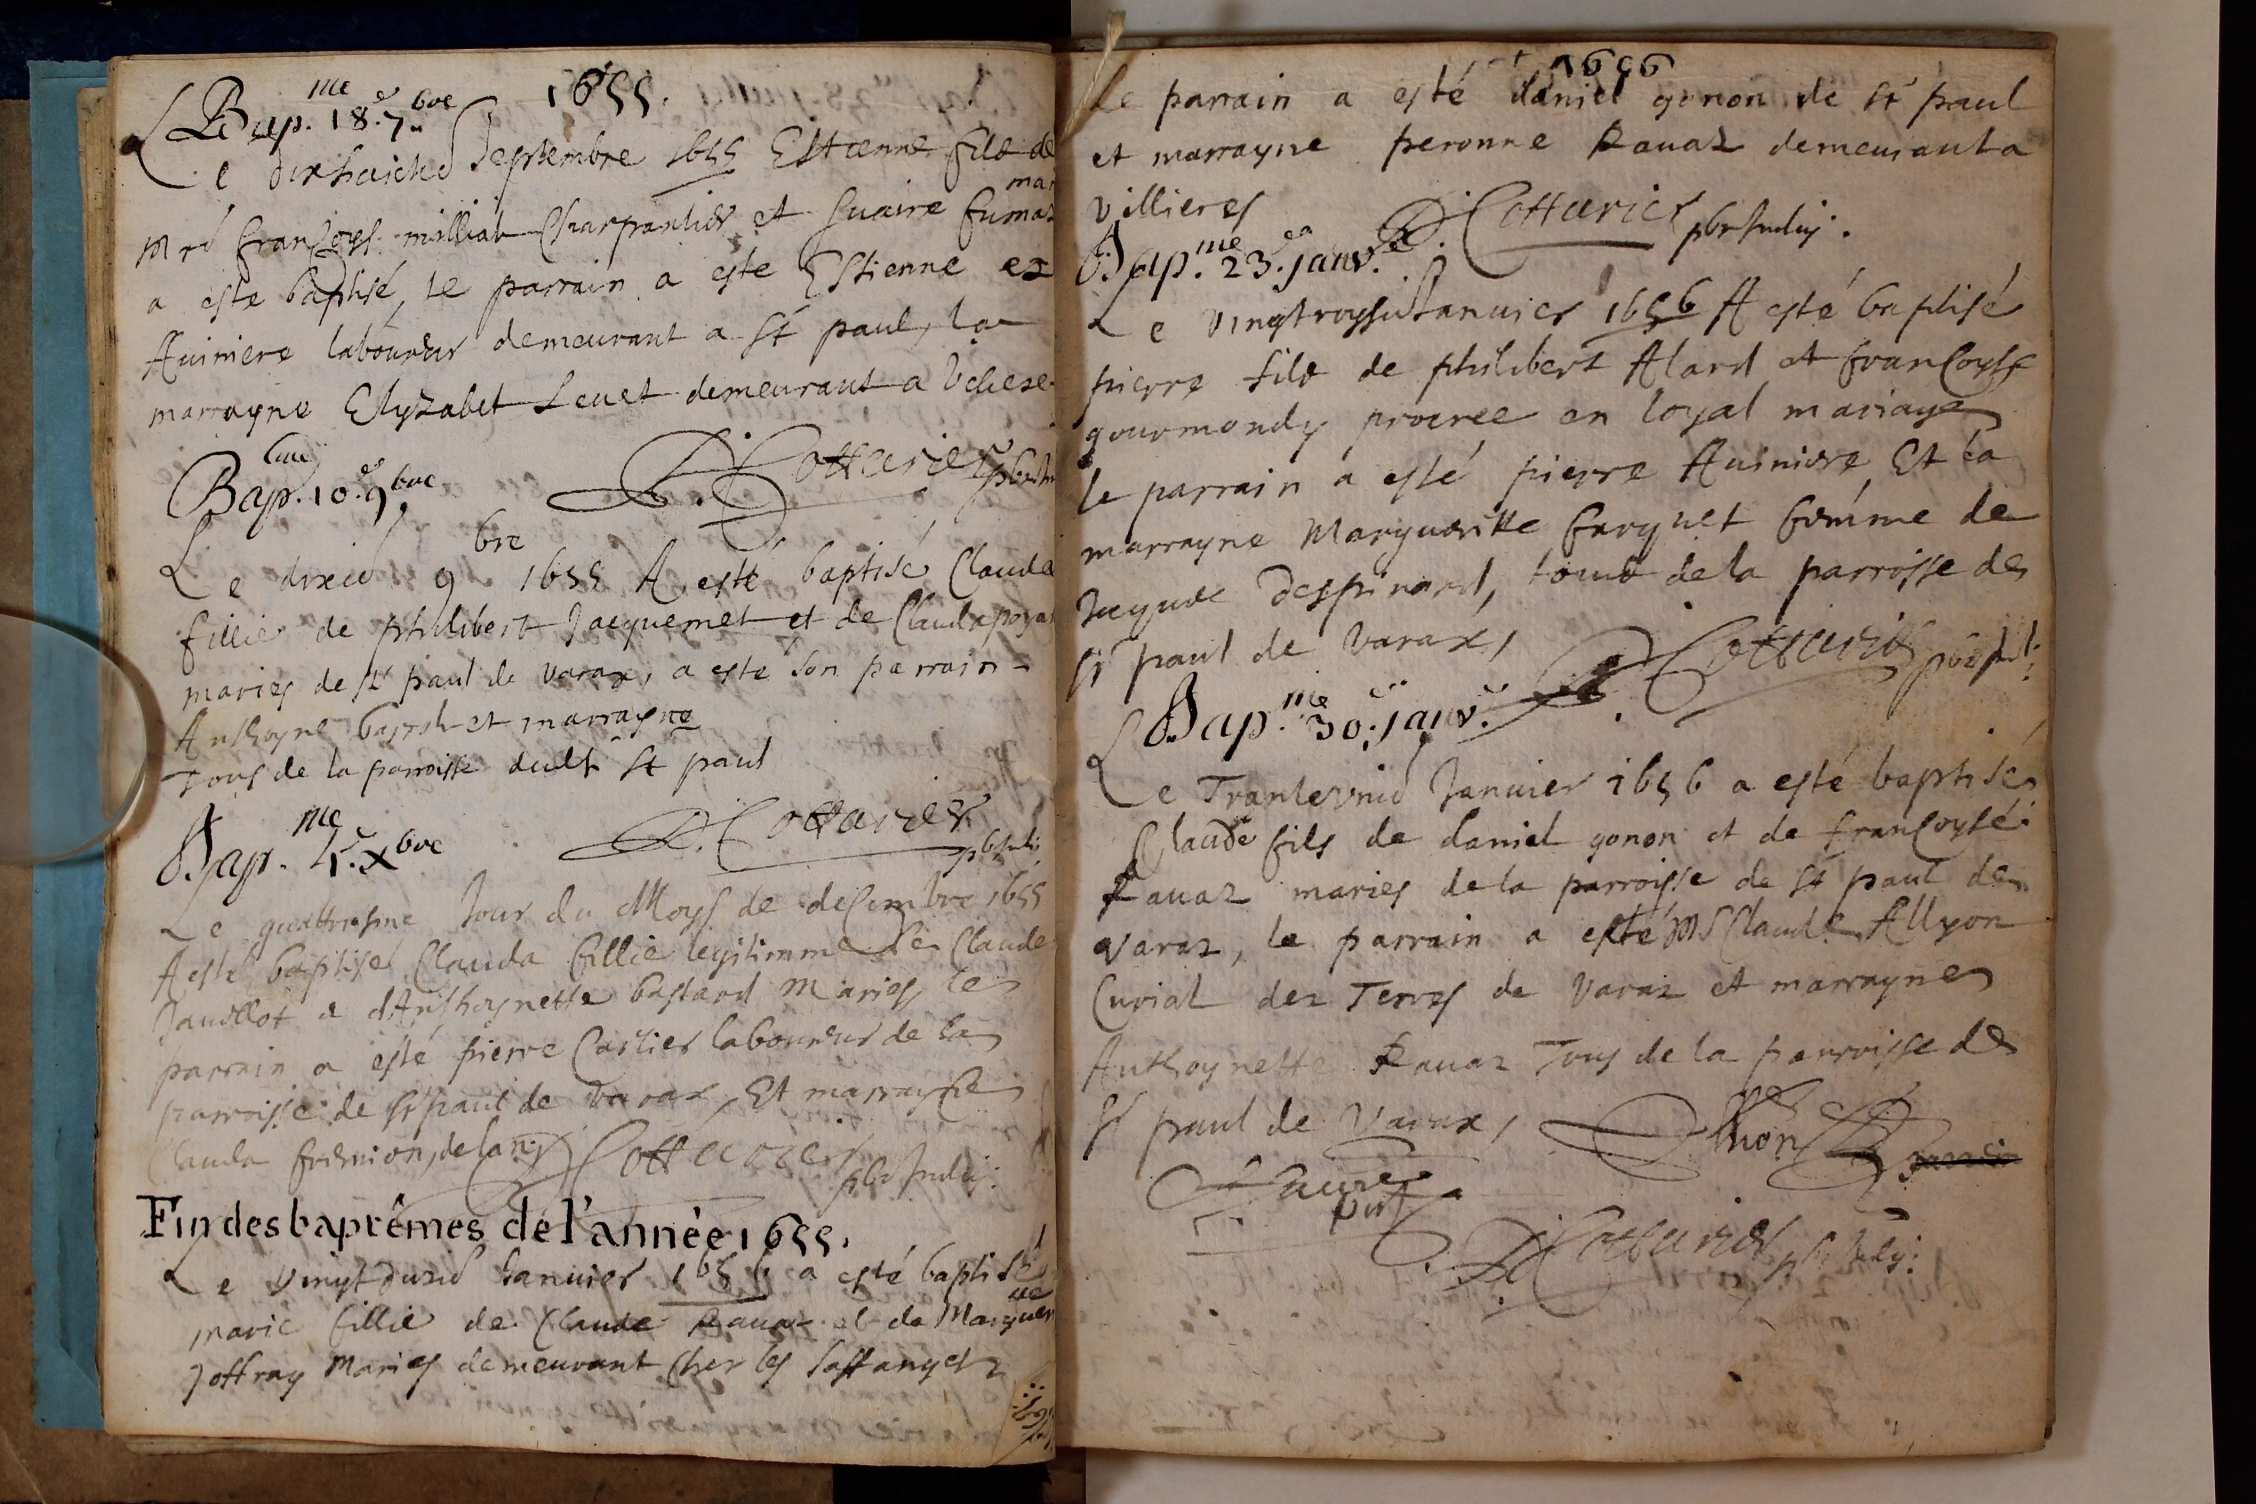 1655.
Bap.me 18.e 7.bre
Le dixhuictie Septembre 1655 Estienne fils de
Mre Françoys milliat Charpantier et Guaire fumaz
mar
a este baptisé, le parrain a este Estienne ex
Auiniere laboureur demeurant a St paul, la
marrayne Elyzabet Leuet demeurant a
Bap. 10.e 9bre
D. Cottarier pbr
Le dixie 9bre 1655 A esté baptisé Clauda
fillie de philibert Jacquemet et de Clauda poya
maries de St paul de Varax, a esté son parrain
Anthoyne et marrayne
Tous de la parroisse dudt St paul
Bap.me 4.e Xbre
D. Cottarier
Le quattriesme Jour du Moys de decembre 1655
A esté baptisé Clauda fillie legitimme de Claude
Jauillot et d'Anthoynette bastard Maries le
parrain a esté pierre Cartier laboureur de la
parroisse de St paul de Varax, Et marrayne
Clauda fremion, de
D. Cottarier
Fin des baptêmes de l'année 1655.
Le vingt Janvier 1656 a esté baptisé
marie fillie de Claude Rauaz et de Marguerite
Joffray Maries demeurant Cher les
1656
Le parrain a esté daniel gonon de St paul
et marrayne peronne Rauaz demeurant a
Villieres
D. Cottarier pbr
Bap.me 23.e janv.r
Le vingtroysie Januier 1656 A esté baptisé
pierre fils de philibert Alard et Françoyse
gourmondy procree en loyal mariage
le parrain a esté pierre Auiniere Et la
marrayne Marguerite femme de
Jacques Despinard, tous de la parroisse de
St paul de Varax,
D. Cottarier
Bap.me 30.e janv.r
Le Januier 1656 a esté baptisé
Claude fils de daniel gonon et de françoyse
Rauaz maries de la parroisse de St paul de
Varaz, le parrain a esté Mr Claude Allyon
Curial dez Terres de Varaz et marrayne
Anthoynette Rauaz Tous de la parroisse de
St paul de Varax,
D. Cottarier